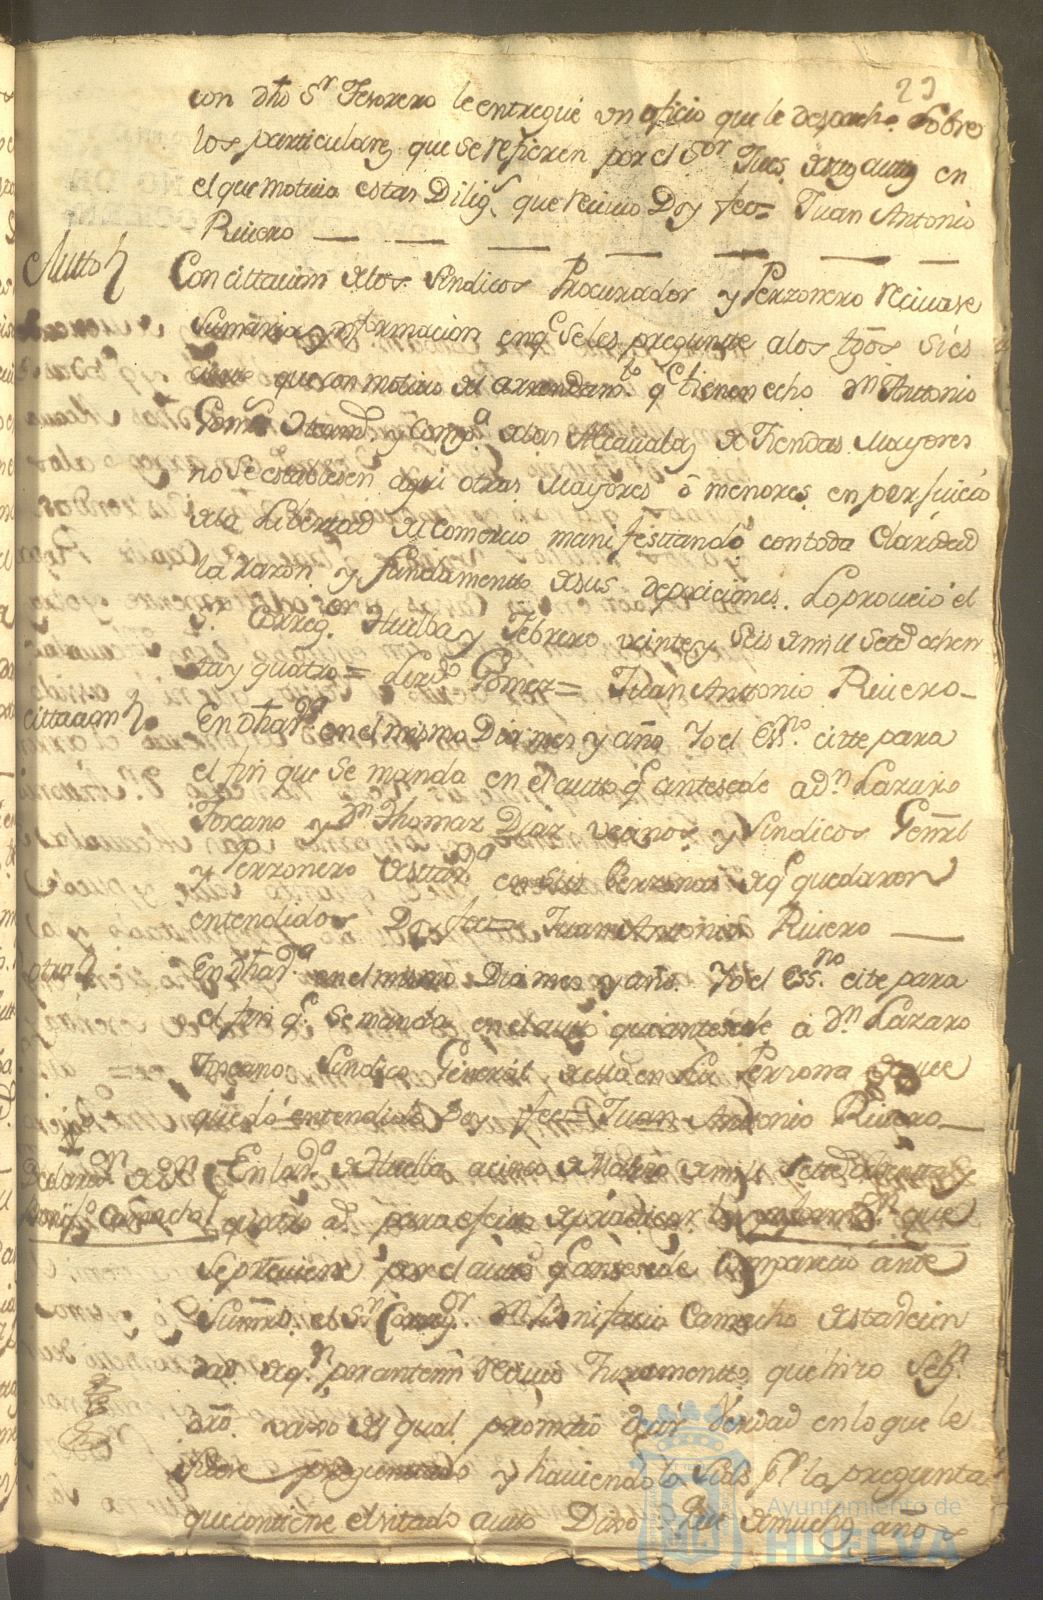 23
con dho Sr Tesorero le entregue un oficio que le despacho sobre
los particulares que se refieren por el Sor Jues en
el que motiva estas Dilig.s que recivio Doy fee= Juan Antonio
Rivero
Autto
Con cittacion a los Sindicos Procurador y Perzonero recivase
Sumaria ynformacion enq.e se les pregunte a los tgos si es
cierto que con motivo del arrendam.to q.e tienen echo Dn Antonio
y Comp.a de las Alcavalas de Tiendas Mayores
no se establesen aqui otras Mayores ô menores en perjuicio
de la Libertad del Comercio manifesttando con toda Claridad
la razon y fundamentto de sus deposiciones. Lo proveió el
Sr Correg.or Huelba y Febrero veinte y seis de mill Setes ochen
ta y quatro= Lizdo Gomez= Juan Antonio Rivero
cittacion
En Dha Va en el mismo Dia mes y año Yo el Essno citte para
el fin que se manda en el autto q antesede a Dn Lazaro
Toscano y Dn Thomas Diaz vecinos y Sindicos Genrl
y Perzonero de estta Va en sus Perzonas de q quedaron
entendidos Doy fee= Juan Antonio Rivero
otra
En Dha Va en el mismo Dia mes y año Yo el Essno cite para
el fin q.e Se manda en el auto que antesede a Dn Lazaro
Toscano Sindico General de ella en su Perzona de que
quedó entendido Doy fee= Juan Antonio Rivero
Declaron de Dn
Bonifo Camacho
En la Va de Huelba a cinco de Marzo de mill Settes ochenta y
quatro as para efecto de practicar la ynformon que
Se previene por el auto q antesede Comparecio ante
Su mrd el Sr Correg.r Dn Bonifacio Camacho de esta vecin
dad de q.n por ante mi recivio Juramento que hizo Seg.n
dro vaxo del qual prometió decir Verdad en lo que le
fuere preguntado y haviendolo sido pr la pregunta
que contiene el sitado auto Dixo: Que de muchos años
Ayuntamiento de
HUELVA